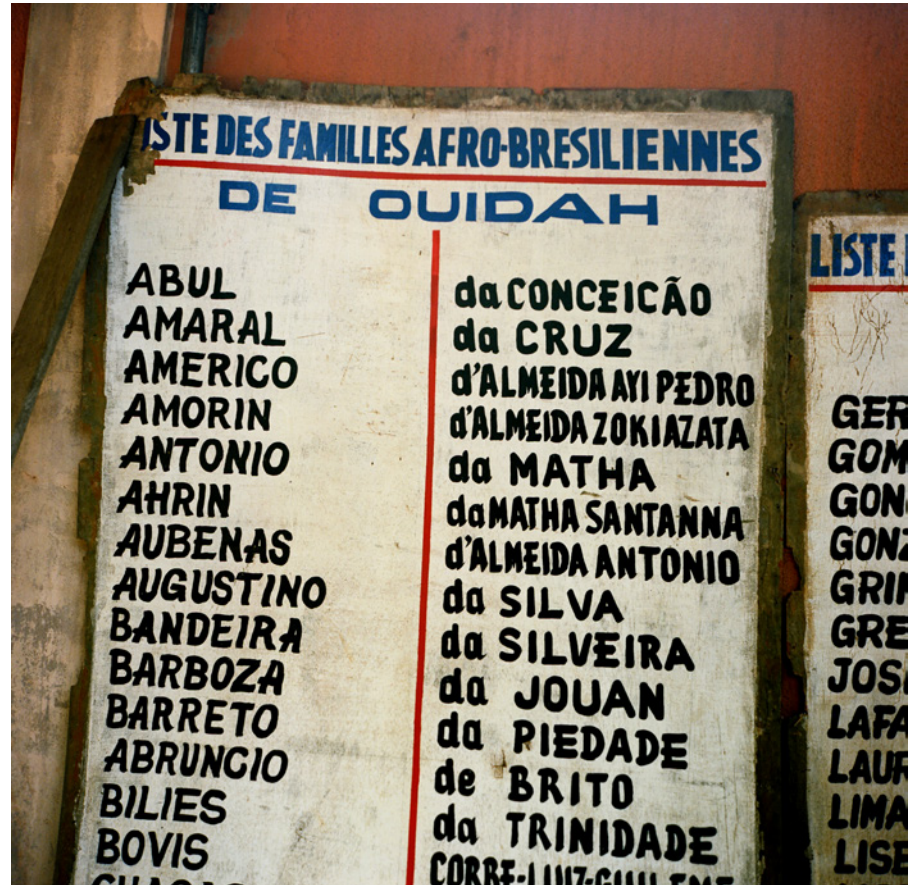 ISTE DES FAMILLES AFRO-BRESILIENNES
DE OUIDAH
ABUL
AMARAL
AMERICO
AMORIN
ANTONIO
AHRIN
AUBENAS
AUGUSTINO
BANDEIRA
BARBOZA
BARRETO
ABRUNCIO
BILIES
BOVIS
da CONCEICÃO
da CRUZ
d'ALMEIDA AYI PEDRO
d'ALMEIDA ZOKIAZATA
da MATHA
da MATHA SANTANNA
d'ALMEIDA ANTONIO
da SILVA
da SILVEIRA
da JOUAN
da PIEDADE
de BRITO
da TRINIDADE
LISTE
GER
GOM
GON
GONZ
GRI
GRE
JOS
LAFA
LAUR
LIMA
LISE